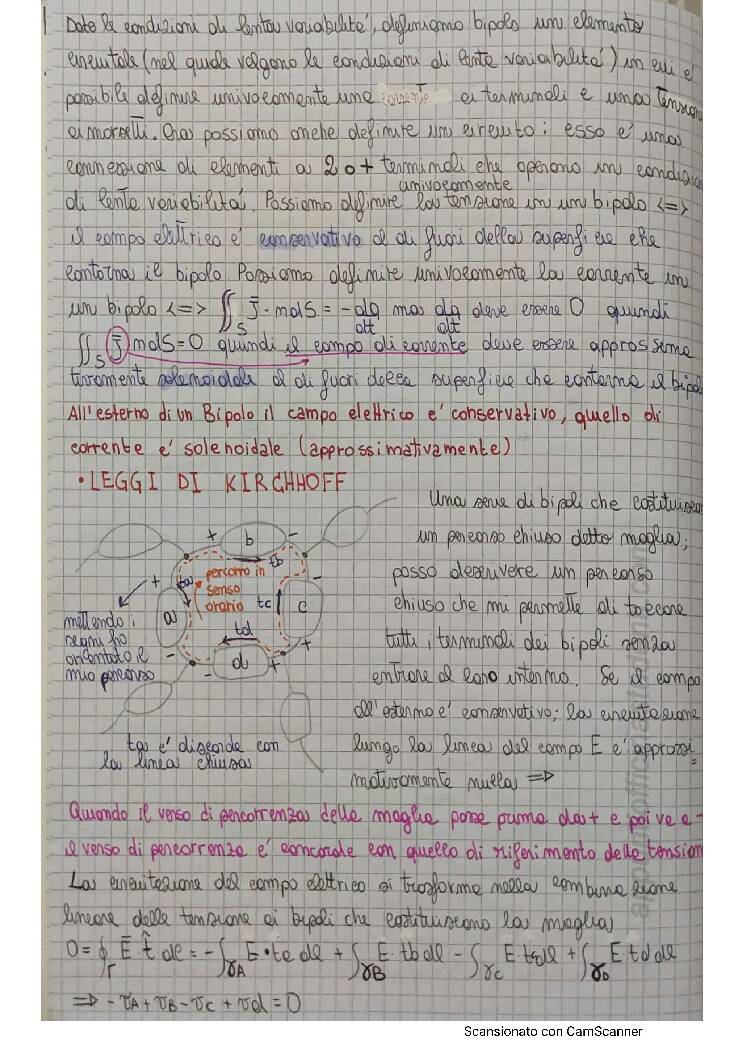 Date le condizioni di lenta variabilità, definiamo bipolo un elemento
circuitale (nel quale valgono le condizioni di lente variabilità) in cui è
possibile definire univocamente una corrente ai terminali e una tensione
ai morsetti. Ora possiamo anche definire un circuito: esso è una
connessione di elementi a 2 o + terminali che operano in condizioni
di lenta variabilità. Possiamo definire univocamente la tensione in un bipolo <=>
il campo elettrico è conservativo al di fuori della superficie che
contorna il bipolo Possiamo definire univocamente la corrente in
un bipolo <=> ∬S J̄ · n dS = -dq/dt ma dq/dt deve essere 0 quindi
∬S J̄ n dS = 0 quindi il campo di corrente deve essere approssima
tivamente solenoidale al di fuori della superficie che contorna il bipolo
All'esterno di un Bipolo il campo elettrico è conservativo, quello di
corrente è solenoidale (approssimativamente)
• LEGGI DI KIRCHHOFF
Una serie di bipoli che costituiscono
un percorso chiuso detto maglia;
posso descrivere un percorso
chiuso che mi permette di toccare
tutti i terminali dei bipoli senza
entrare al loro interno. Se il campo
all'esterno è conservativo; la circuitazione
lungo la linea del campo E è approssi
mativamente nulla =>
+ b -
tb
percorro in
senso
orario
ta
tc
c
-
+
+
a
-
td
- d +
mettendo i
segni ho
orientato il
mio percorso
ta è discorde con
la linea chiusa
Quando il verso di percorrenza della maglia passa prima da + e poi va a -
il verso di percorrenza è concorde con quello di riferimento delle tensioni
La circuitazione del campo elettrico si trasforma nella combinazione
lineare delle tensione ai bipoli che costituiscono la maglia
0 = ∮Γ Ē · t̂ dl = -∫γA E · ta dl + ∫γB E · tb dl - ∫γC E · tc dl + ∫γD E · td dl
=> - vA + vB - vC + vd = 0
Scansionato con CamScanner